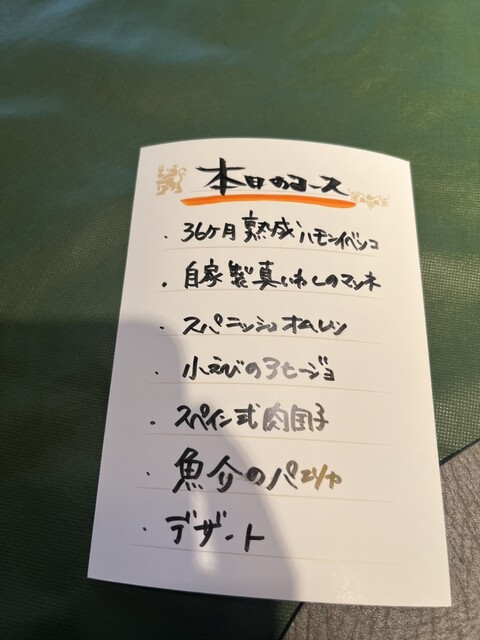 本日のコース
・36ケ月熟成ハモンイベリコ
・自家製真いわしのマリネ
・スパニッシュオムレツ
・小えびのアヒージョ
・スペイン式肉団子
・魚介のパエリヤ
・デザート